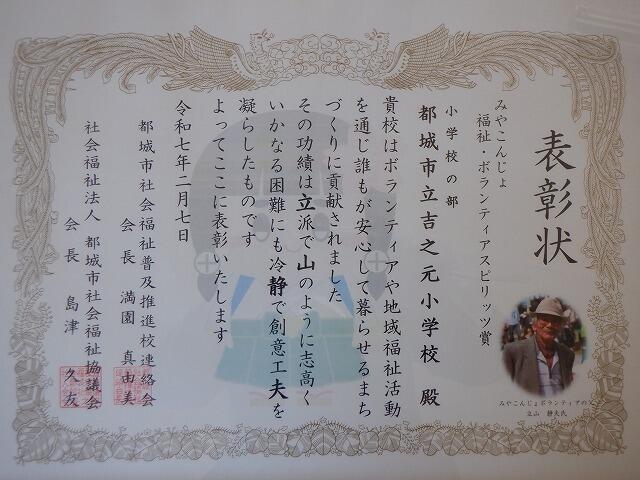 表彰状
みやこんじょ
福祉・ボランティアスピリッツ賞
小学校の部
都城市立吉之元小学校 殿
貴校はボランティアや地域福祉活動
を通じ誰もが安心して暮らせるまち
づくりに貢献されました
その功績は立派で山のように志高く
いかなる困難にも冷静で創意工夫を
凝らしたものです
よってここに表彰いたします
令和七年二月七日
都城市社会福祉普及推進校連絡会
会長 満園 真由美
社会福祉法人 都城市社会福祉協議会
会長 島津 久友
みやこんじょボランティアの父
立山 静夫氏